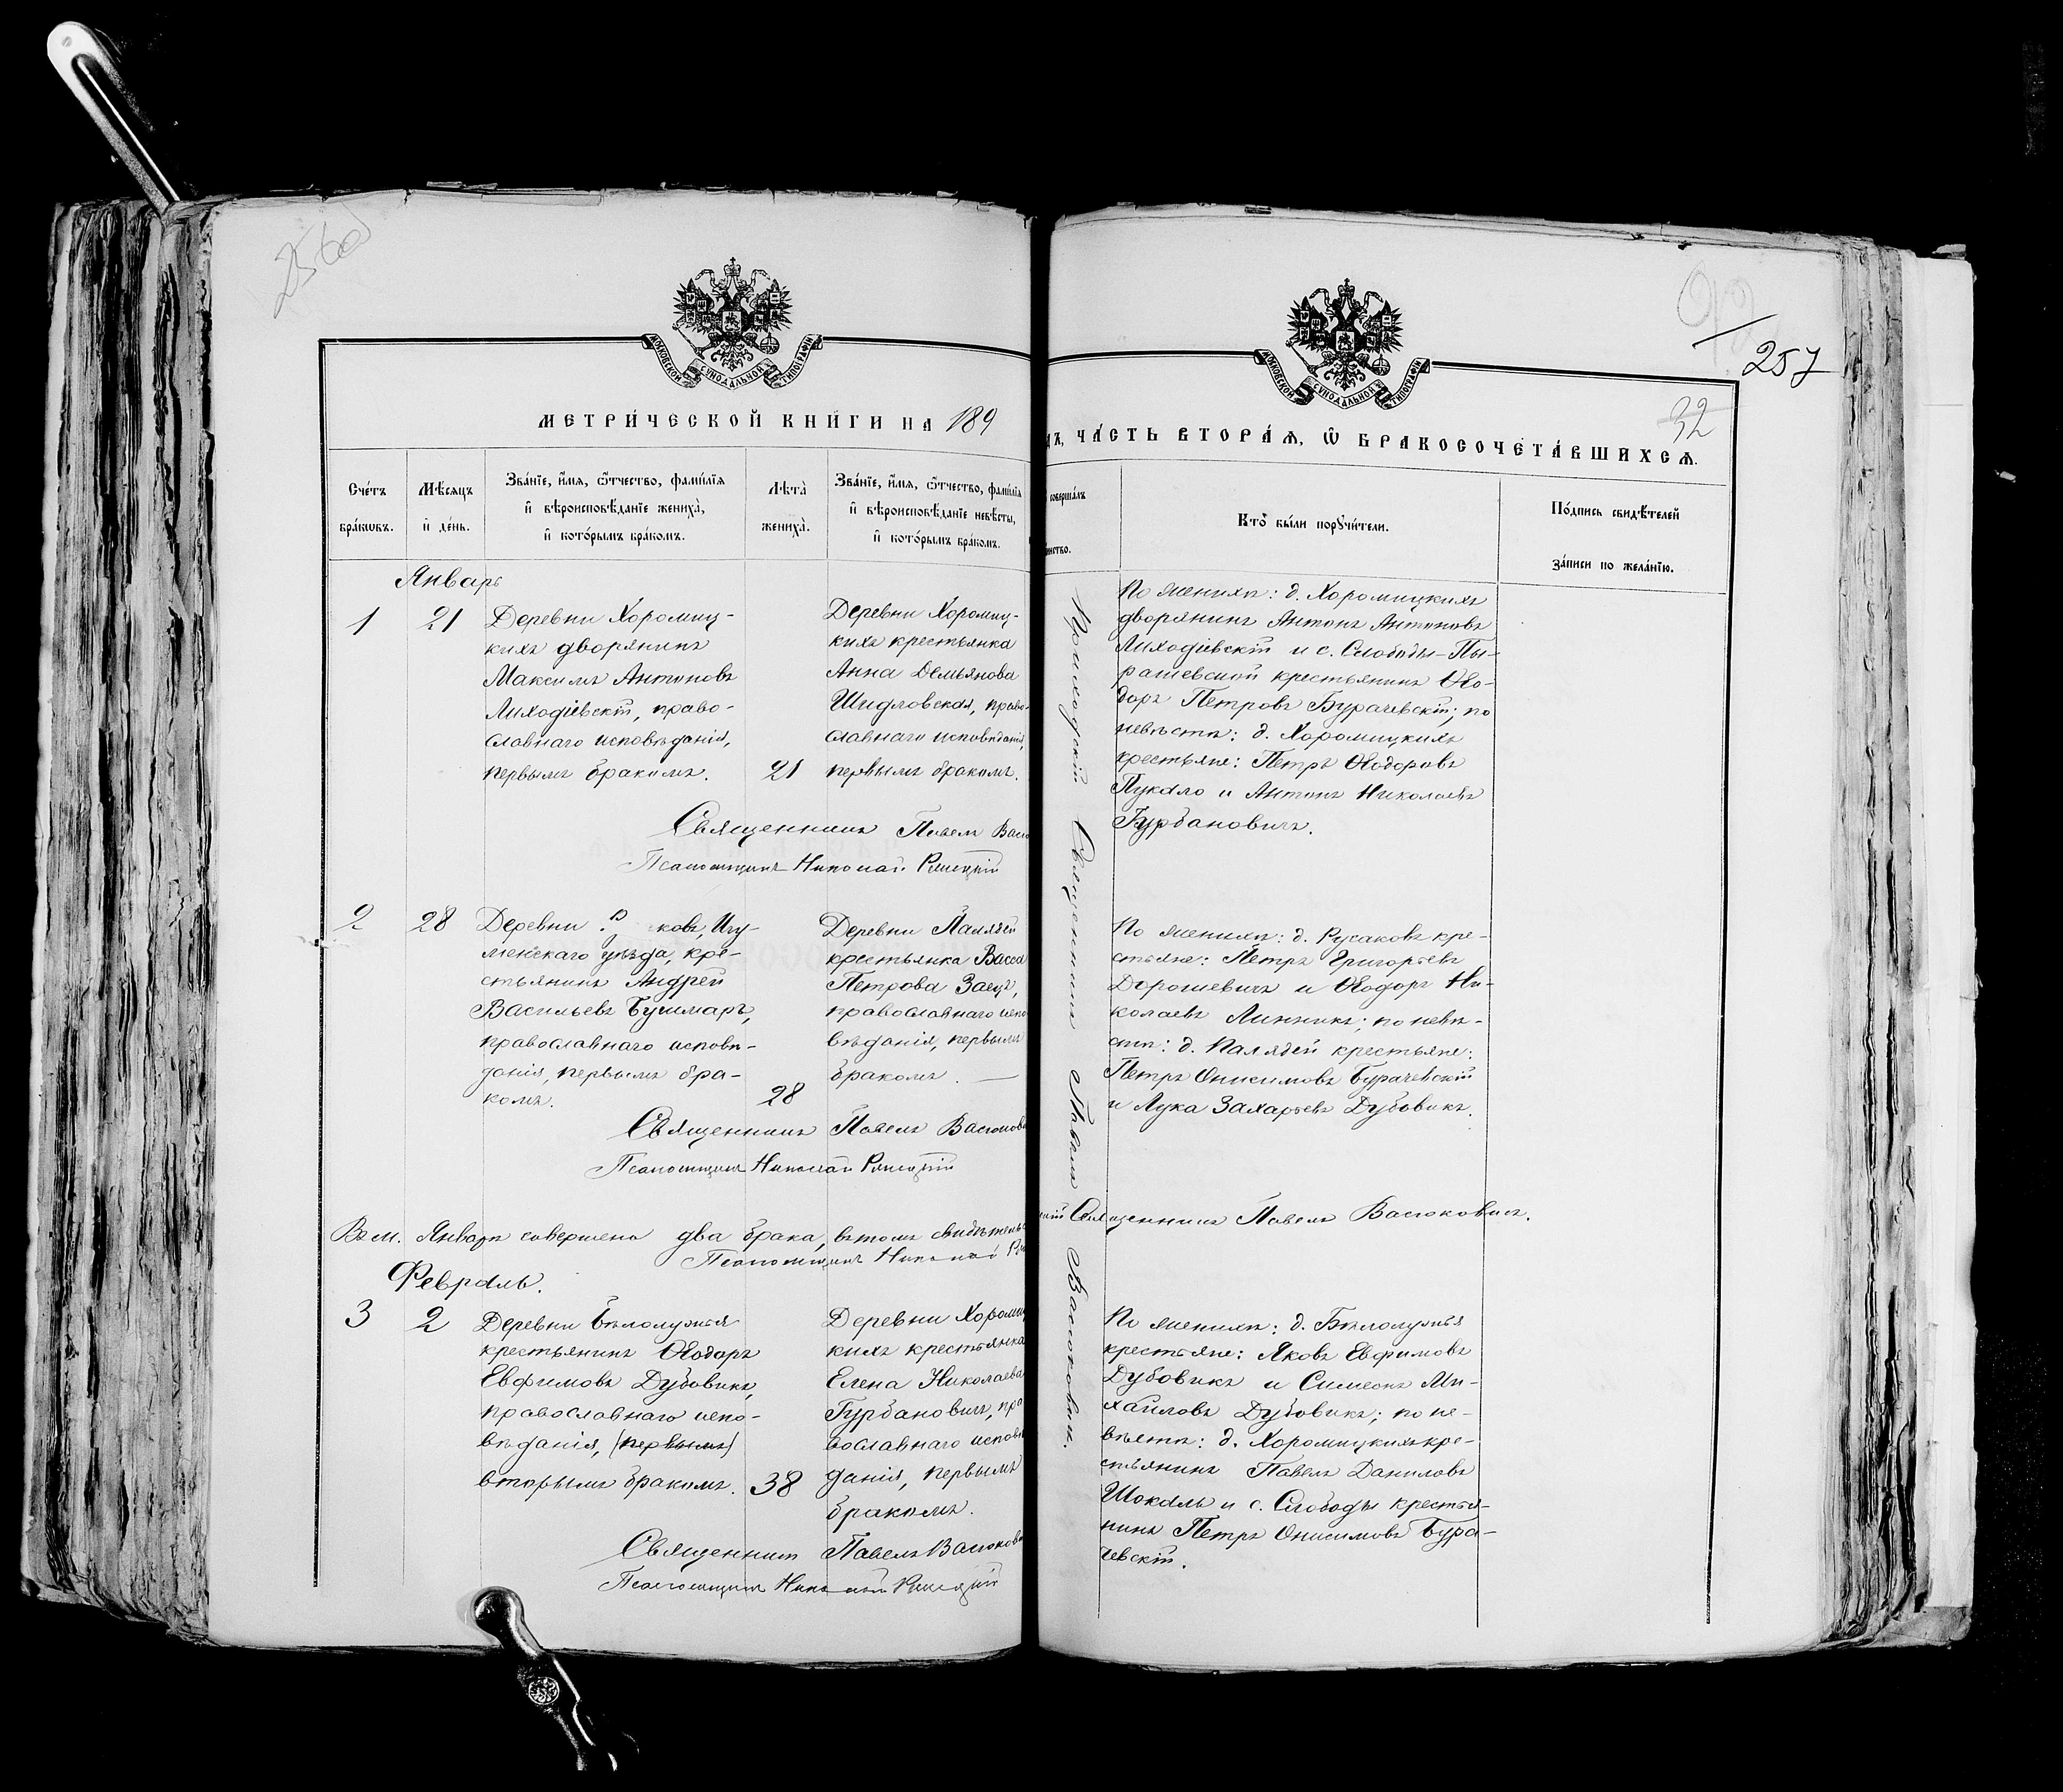 256об
МОСКОВСКОЙ СѴНОДАЛЬНОЙ ТИПОГРАФІИ
МЕТРИ́ЧЕСКОЙ КНИ́ГИ НА 189
Сче́тъ бра́ковъ.
Мѣ́сяцъ и҆ де́нь.
Зва́нїе, и҆́мѧ, ѻ҆́тчество, фами́лїѧ
и҆ вѣроисповѣ́данїе жениха̀,
и҆ кото́рымъ бра́комъ.
Лѣта̀ жениха̀.
Зва́нїе, и҆́мѧ, ѻ҆́тчество, фами́лїѧ
и҆ вѣроисповѣ́данїе невѣ́сты,
и҆ кото́рымъ бра́комъ.
Январь
1
21
Деревни Хоромиц-
кихъ дворянинъ
Максимъ Антоновъ
Лиходіевскій, право-
славнаго исповѣданія,
первымъ бракомъ.
21
Деревни Хоромиц-
кихъ крестьянка
Анна Демьянова
Шидловская, право-
славнаго исповѣданія,
первымъ бракомъ.
Священникъ Павелъ Васю
Псаломщикъ Николай
2
28
Деревни ковъ, Игу-
менскаго уѣзда, кре-
стьянинъ Андрей
Васильевъ Бушмаръ,
православнаго исповѣ-
данія, первымъ бра-
комъ.
28
Деревни Палядей
крестьянка Васса
Петрова Заяцъ,
православнаго испо
вѣданія, первымъ
бракомъ. —
Священникъ Павелъ Васюкови
Псаломщикъ Николай
Въ м. Январѣ совершено два брака, въ томъ свидѣтельс
Псаломщикъ Николай
Февраль.
3
2
Деревни Бѣлолужья
крестьянинъ Ѳеодоръ
Евфимовъ Дубовикъ,
православнаго испо-
вѣданія, (первымъ)
вторымъ бракомъ.
38
Деревни Хороми
кихъ крестьянка
Елена Николаева
Гурбановичъ, пра
вославнаго исповѣ
данія, первымъ
бракомъ.
Священникъ Павелъ Васюкови
Псаломщикъ Николай
257
32
МОСКОВСКОЙ СѴНОДАЛЬНОЙ ТИПОГРАФІИ
ЧА́СТЬ ВТОРА́Ѧ, Ѽ БРАКОСОЧЕТА́ВШИХСѦ.
соверша́лъ
Кто̀ бы́ли порꙋчи́тели.
По́дпись свидѣ́телей
за́писи по жела́нїю.
Приходскій Священникъ Павелъ Васюковичъ.
По женихѣ: д. Хоромицкихъ
дворянинъ Антонъ Антоновъ
Лиходіевскій и с. Слободы-Пы-
рашевской крестьянинъ Ѳео-
доръ Петровъ Бурачевскій; по
невѣстѣ: д. Хоромицкихъ
крестьяне: Петръ Ѳеодоровъ
Пукало и Антонъ Николаевъ
Гурбановичъ.
По женихѣ: д. Русаковъ кре-
стьяне: Петръ Григорьевъ
Дорошевичъ и Ѳеодоръ Ни-
колаевъ Линникъ; по невѣ-
стѣ: д. Палядей крестьяне:
Петръ Онисимовъ Бурачевскій
и Лука Захарьевъ Дубовикъ.
Священникъ Павелъ Васюковичъ.
По женихѣ: д. Бѣлолужья
крестьяне: Яковъ Евфимовъ
Дубовикъ и Симеонъ Ми-
хайловъ Дубовикъ; по не-
вѣстѣ: д. Хоромицкихъ кре-
стьянинъ Павелъ Даниловъ
Шокаль и с. Слободы крестья-
нинъ Петръ Онисимовъ Бура-
чевскій.